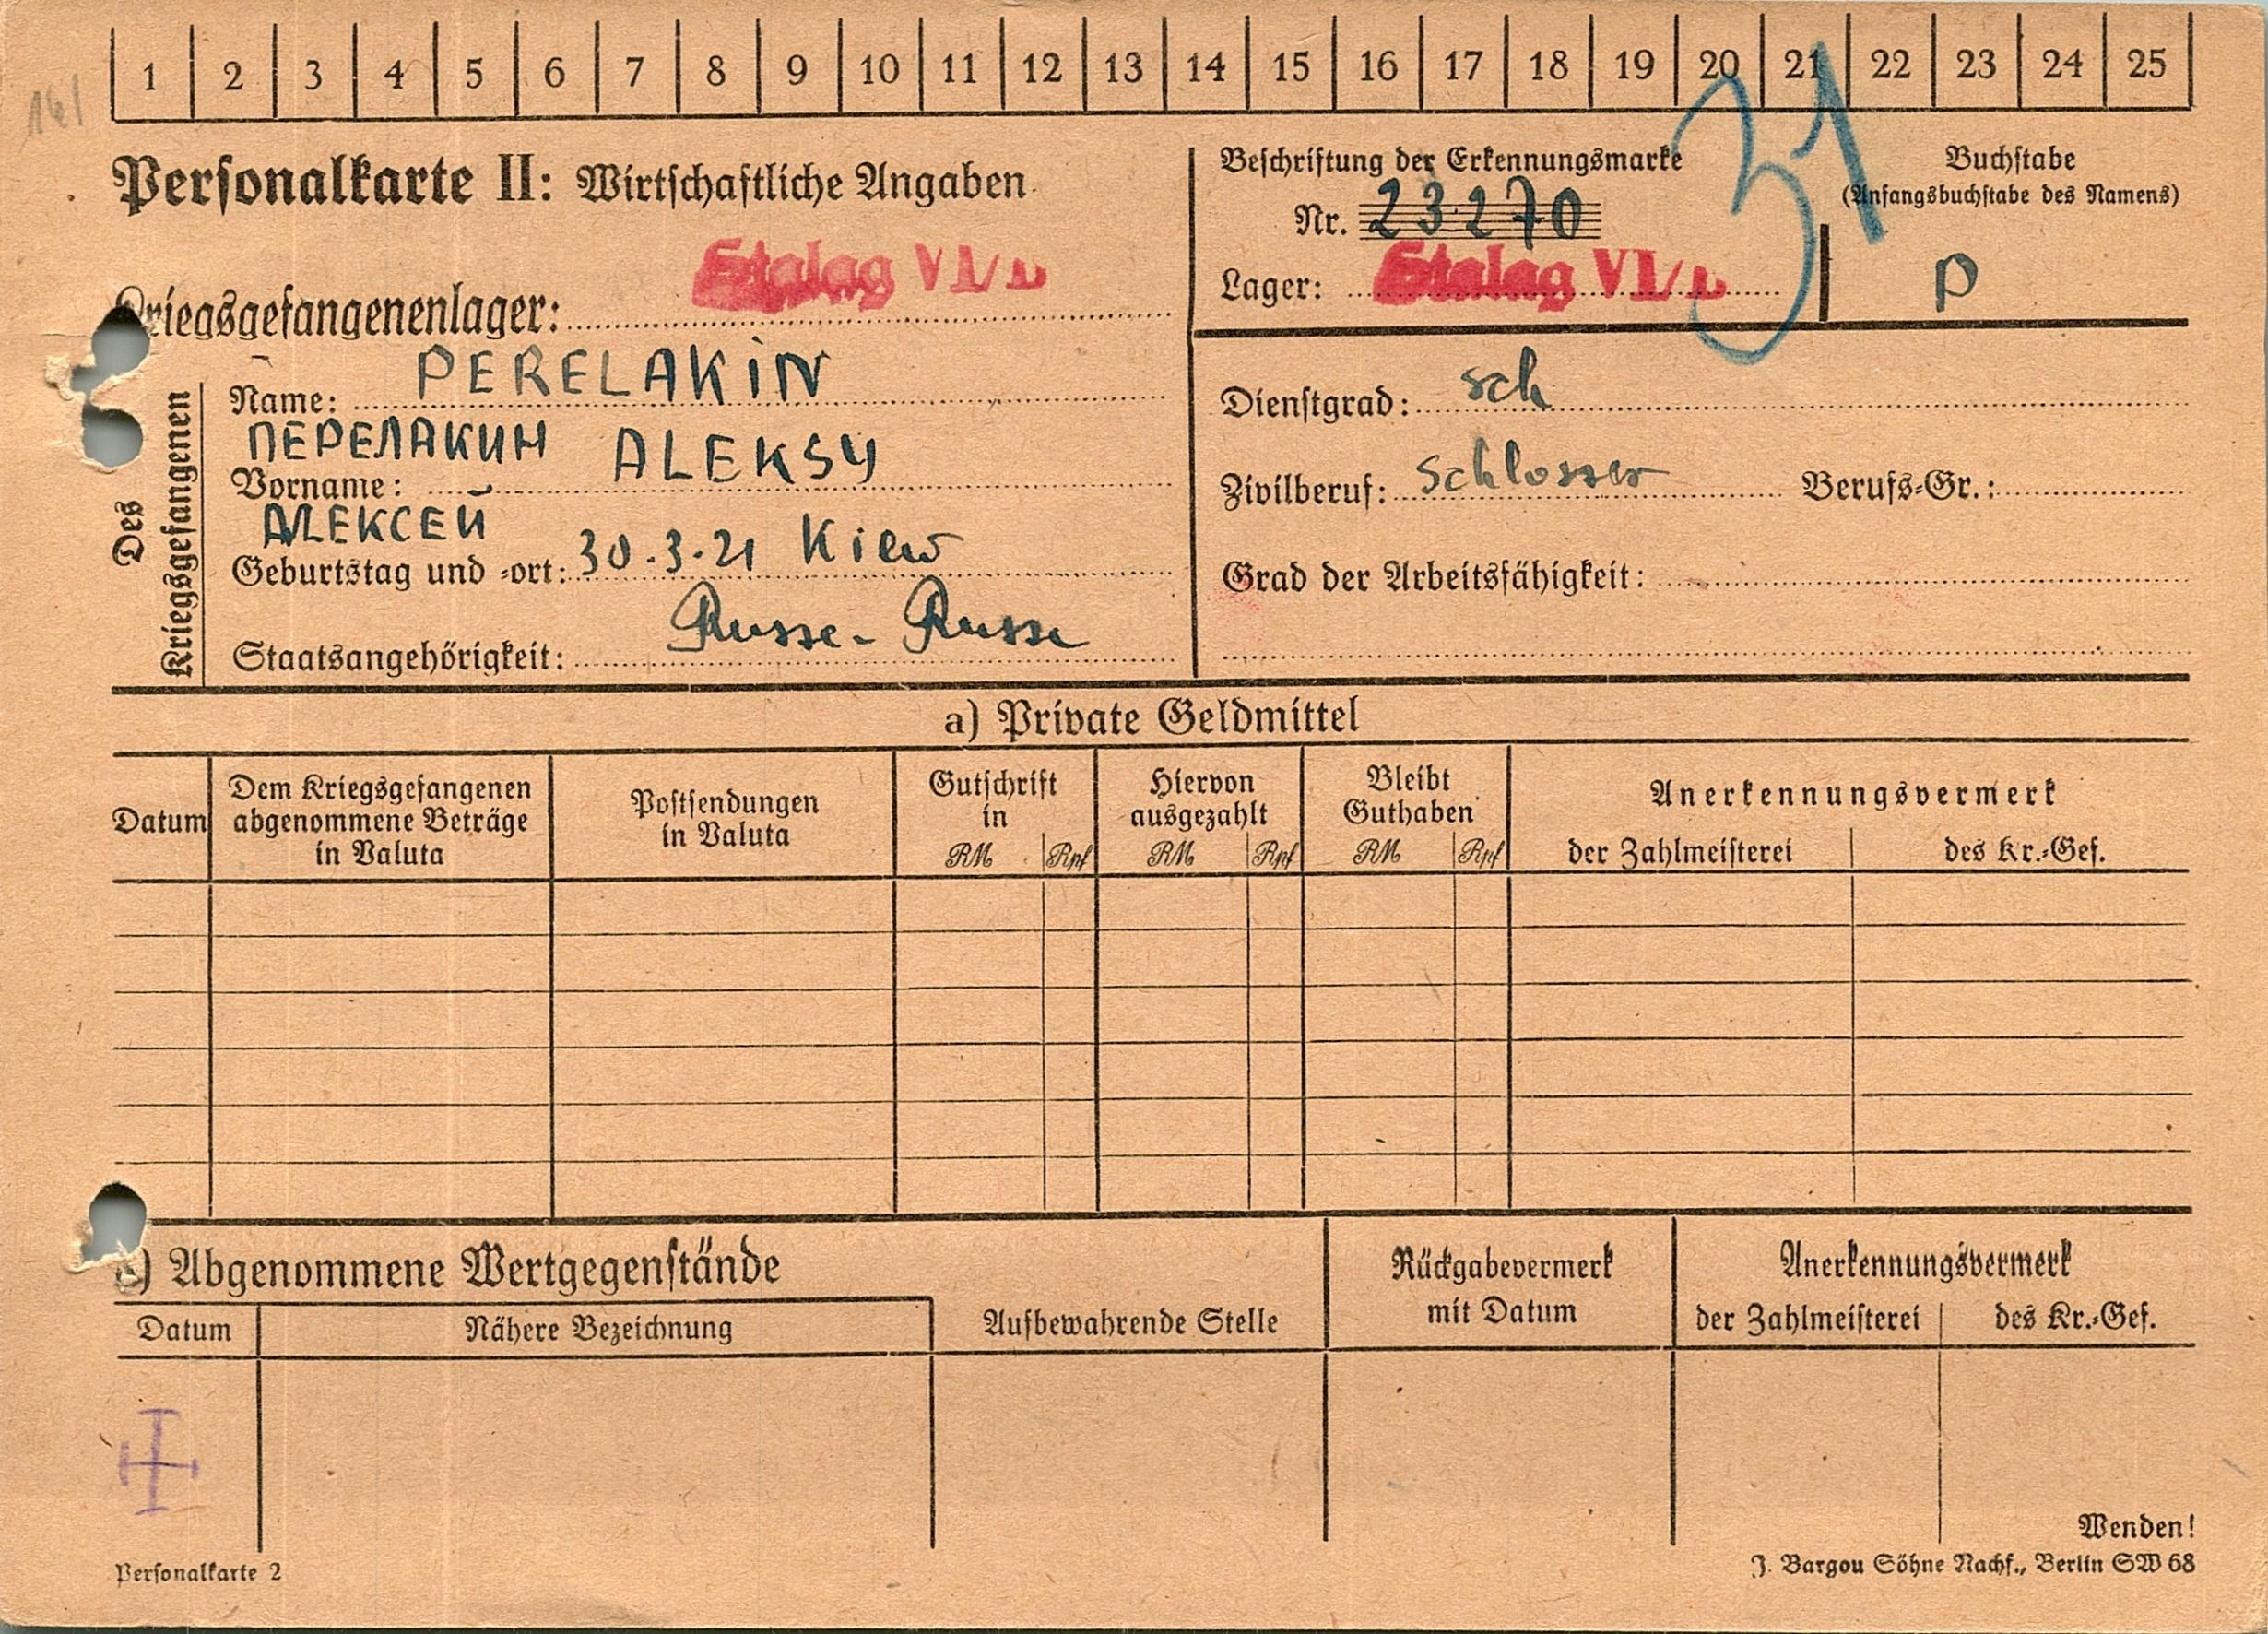 1 2 3 4 5 6 7 8 9 10 11 12 13 14 15 16 17 18 19 20 21 22 23 24 25
31
Personalkarte II: Wirtschaftliche Angaben
Beschriftung der Erkennungsmarke
Nr. 23270
Lager: Stalag VI/
Buchstabe
(Anfangsbuchstabe des Namens)
P
Kriegsgefangenenlager: Stalag VI/
Des Kriegsgefangenen
Name: PERELAKIN
ПЕРЕЛАКИН ALEKSY
Vorname:
АЛЕКСЕЙ
Geburtstag und -ort: 30.3.21 Kiew
Staatsangehörigkeit: Russe - Russe
Dienstgrad: sch
Zivilberuf: Schlosser Berufs-Gr.:
Grad der Arbeitsfähigkeit:
a) Private Geldmittel
Datum
Dem Kriegsgefangenen
abgenommene Beträge
in Valuta
Postsendungen
in Valuta
Gutschrift
in
RM Rpf
Hiervon
ausgezahlt
RM Rpf
Bleibt
Guthaben
RM Rpf
Anerkennungsvermerk
der Zahlmeisterei des Kr.-Gef.
) Abgenommene Wertgegenstände
Datum Nähere Bezeichnung
Aufbewahrende Stelle
Rückgabevermerk
mit Datum
Anerkennungsvermerk
der Zahlmeisterei des Kr.-Gef.
Wenden!
Personalkarte 2
J. Bargou Söhne Nachf., Berlin SW 68